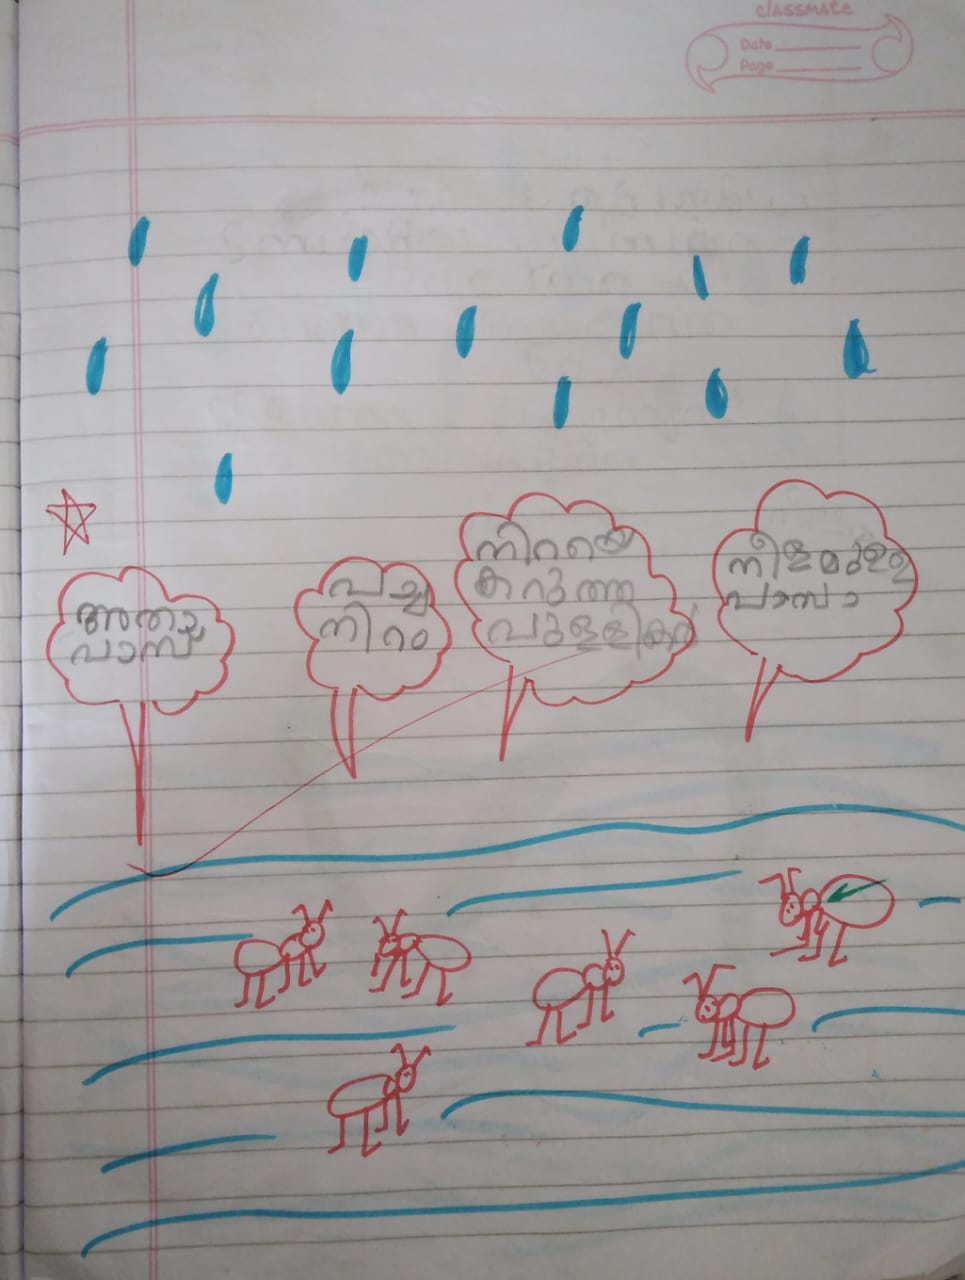 classmate
Date
Page
അതാ
പാമ്പ്
പച്ച
നിറം
നിറയെ
കറുത്ത
പുള്ളികൾ
നീളമുള്ള
പാമ്പാ